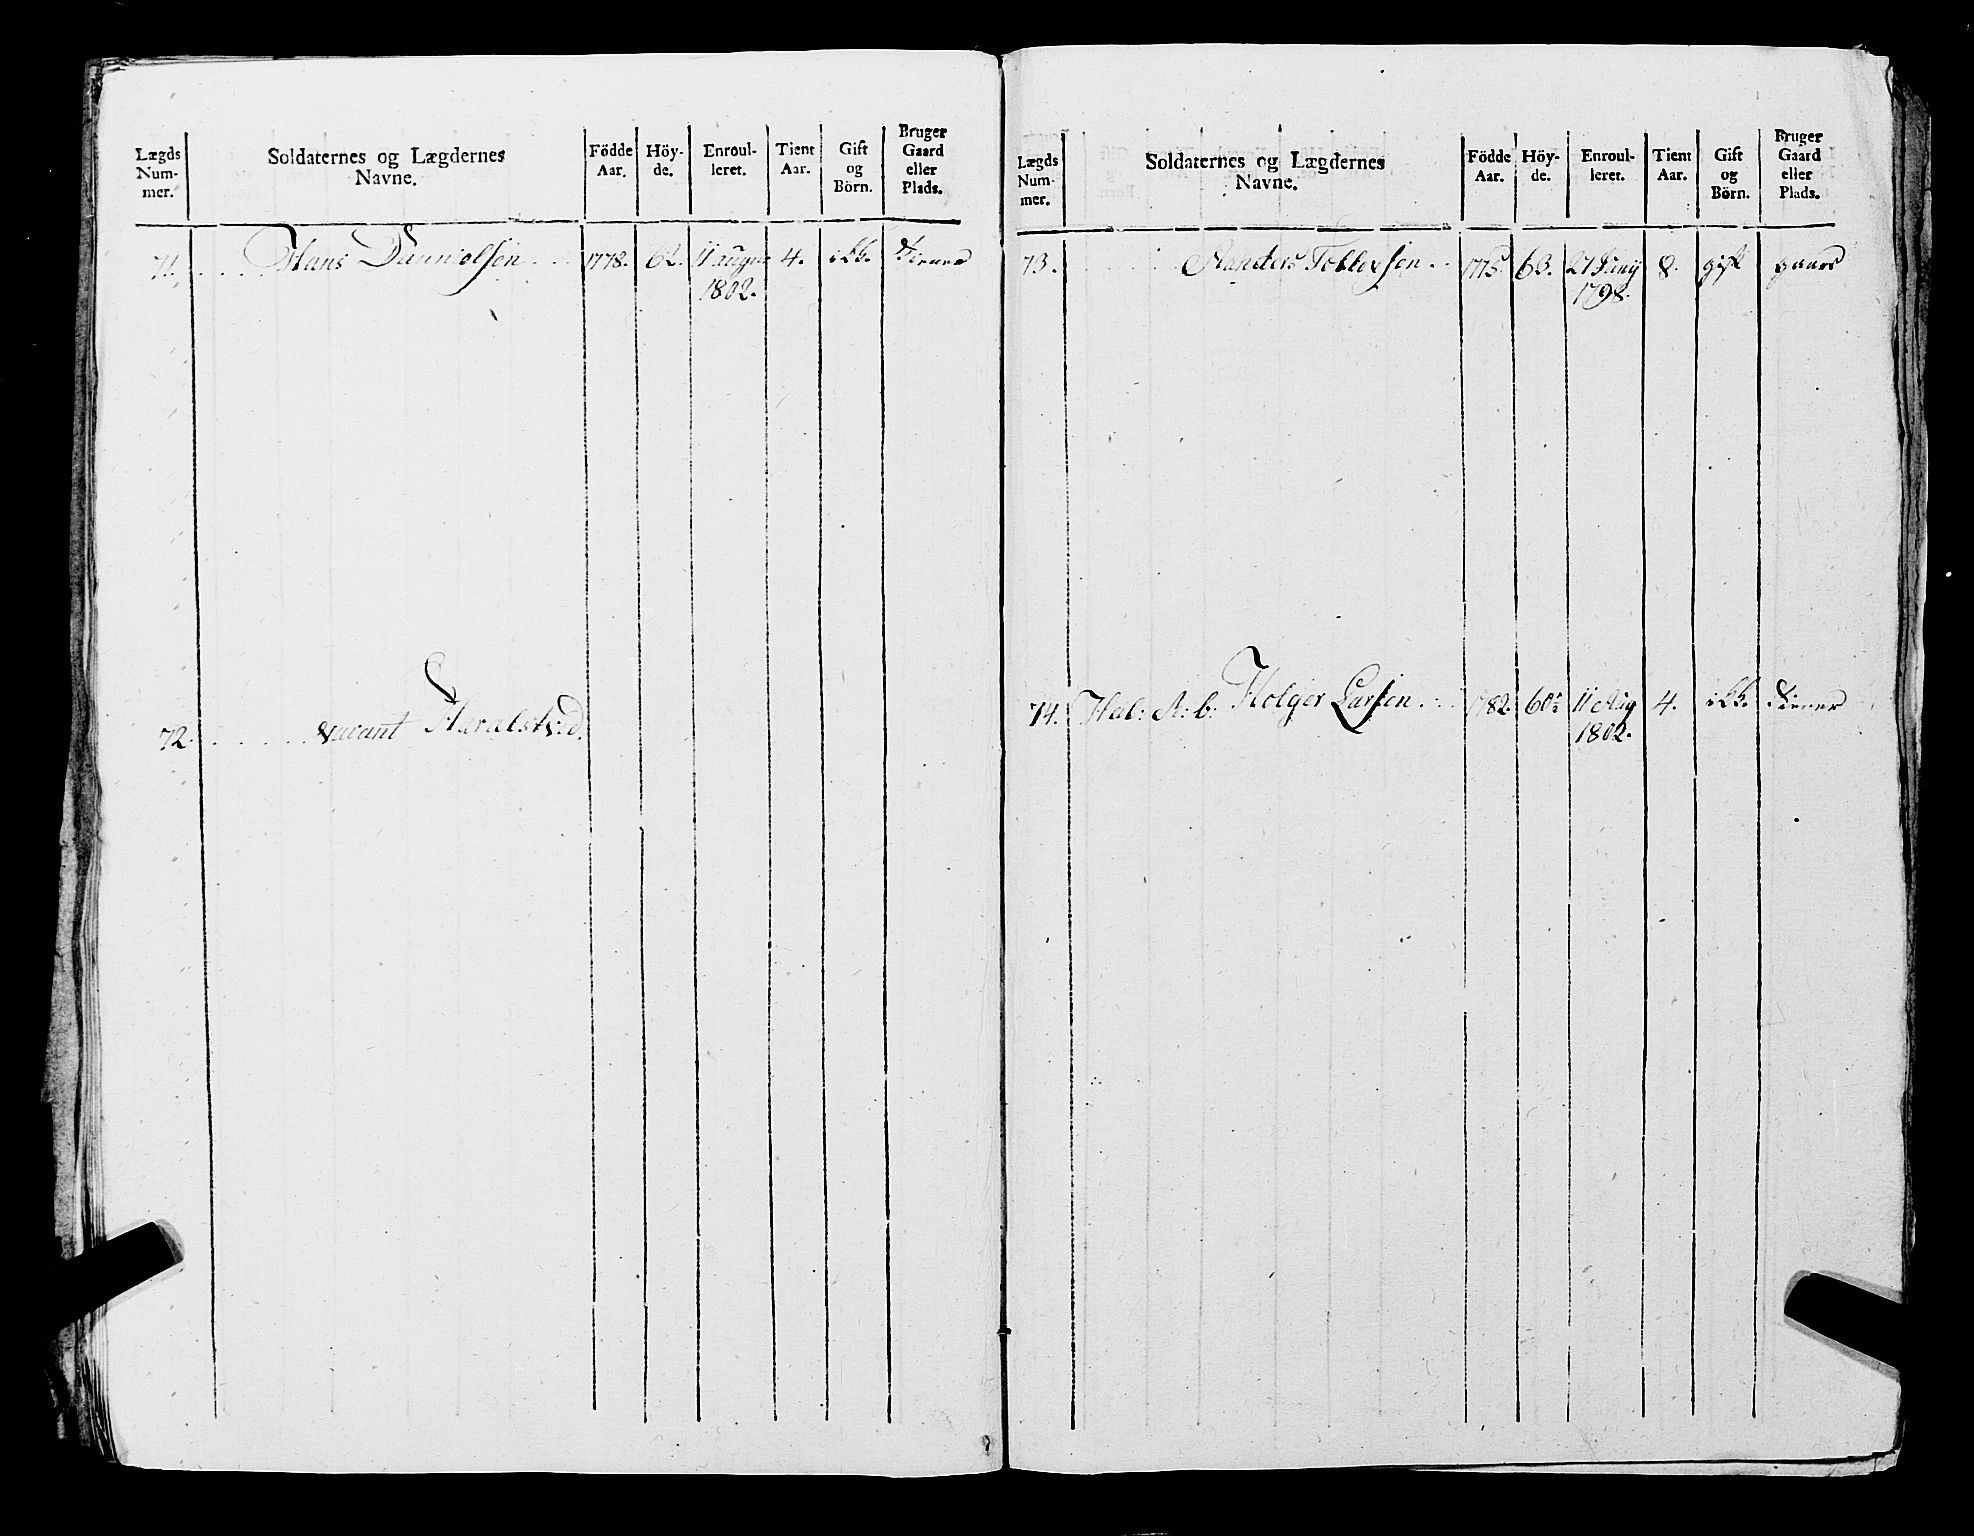 Lægds Num- mer. Soldaternes og Lægdernes Navne. Födde Aar. Höy- de. Enroul- leret. Tient Aar. Gift og Börn. Bruger Gaard eller Plads.
71. Hans Danniolsen 1778. 62. 11 augu 4. ikk. tiener
1802.
72. vacant
Lægds Num- mer. Soldaternes og Lægdernes Navne. Födde Aar. Höy- de. Enroul- leret. Tient Aar. Gift og Börn. Bruger Gaard eller Plads.
73. 1775 63. 27 Junij 8. gift gaard
1798.
74. Hal: A: b: Holger Larsen 1782. 11 Aug 4. ikk. tiener
1802.